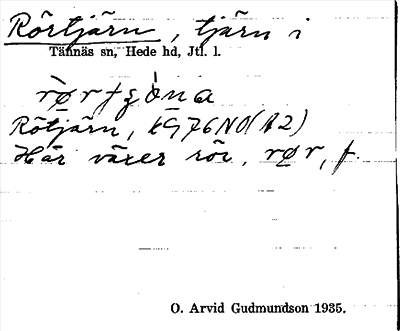 Rörtjärn, tjärn i
Tännäs sn, Hede hd, Jtl. l.
Rötjärn, kg76NO(A2)
Här växer rör, rør, f.
O. Arvid Gudmundson 1935.